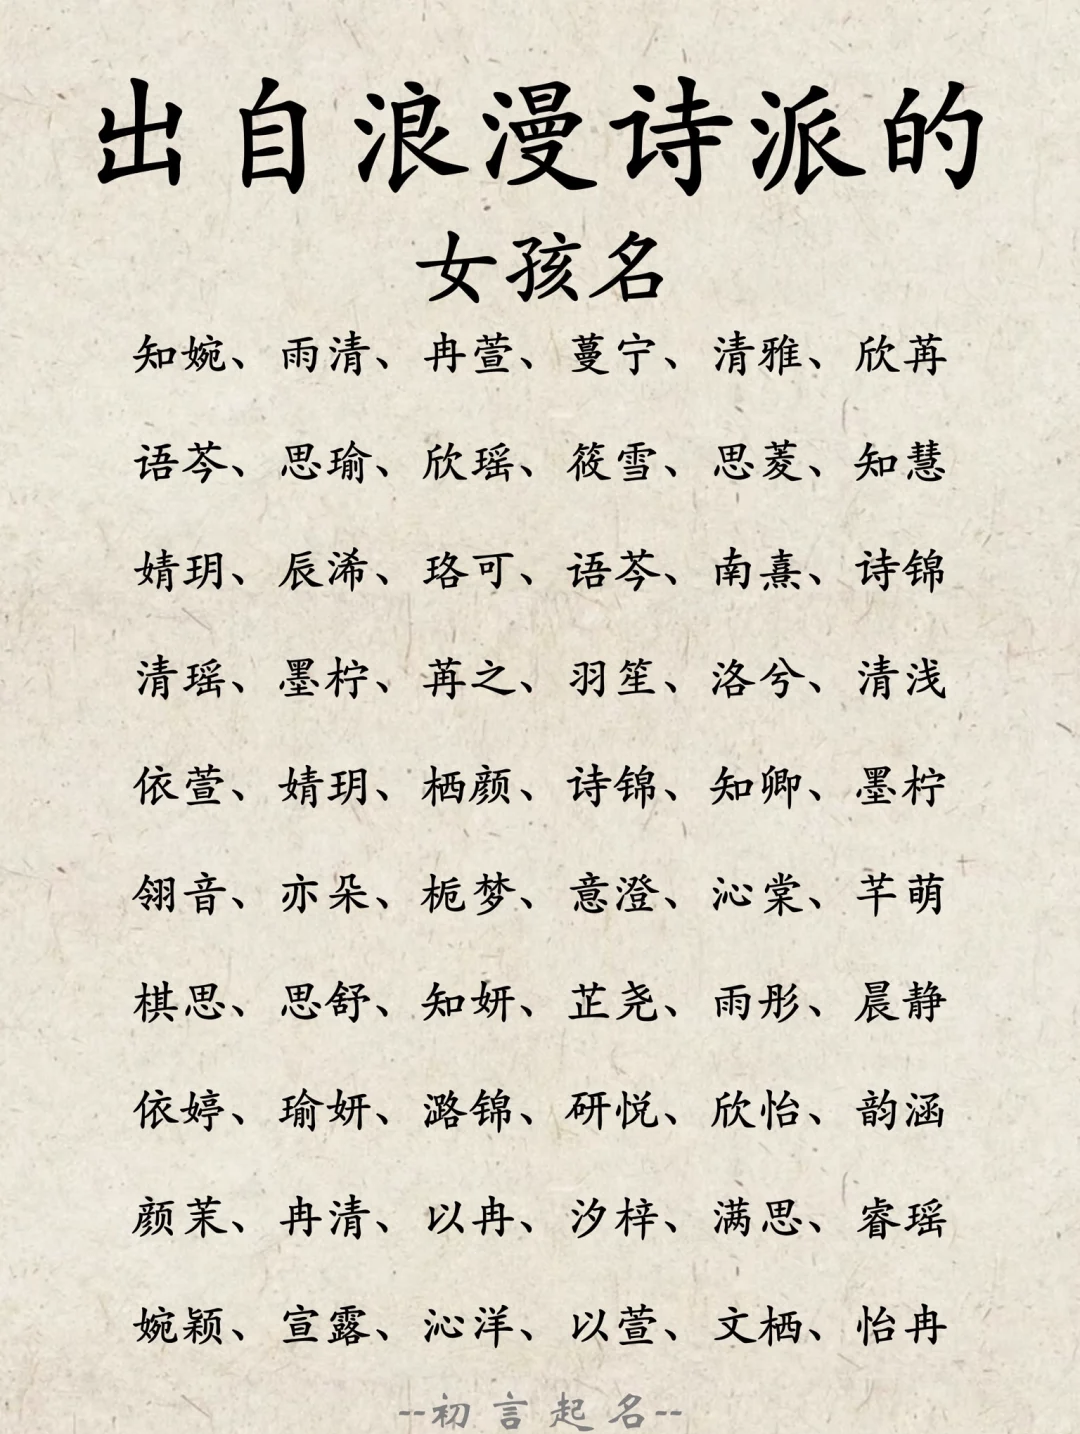 出自浪漫诗派的
女孩名
知婉、雨清、冉萱、蔓宁、清雅、欣苒
语芩、思瑜、欣瑶、筱雪、思菱、知慧
婧玥、辰浠、珞可、语芩、南熹、诗锦
清瑶、墨柠、苒之、羽笙、洛兮、清浅
依萱、婧玥、栖颜、诗锦、知卿、墨柠
翎音、亦朵、栀梦、意澄、沁棠、芊萌
棋思、思舒、知妍、芷尧、雨彤、晨静
依婷、瑜妍、潞锦、研悦、欣怡、韵涵
颜茉、冉清、以冉、汐梓、满思、睿瑶
婉颖、宣露、沁洋、以萱、文栖、怡冉
--初言起名--